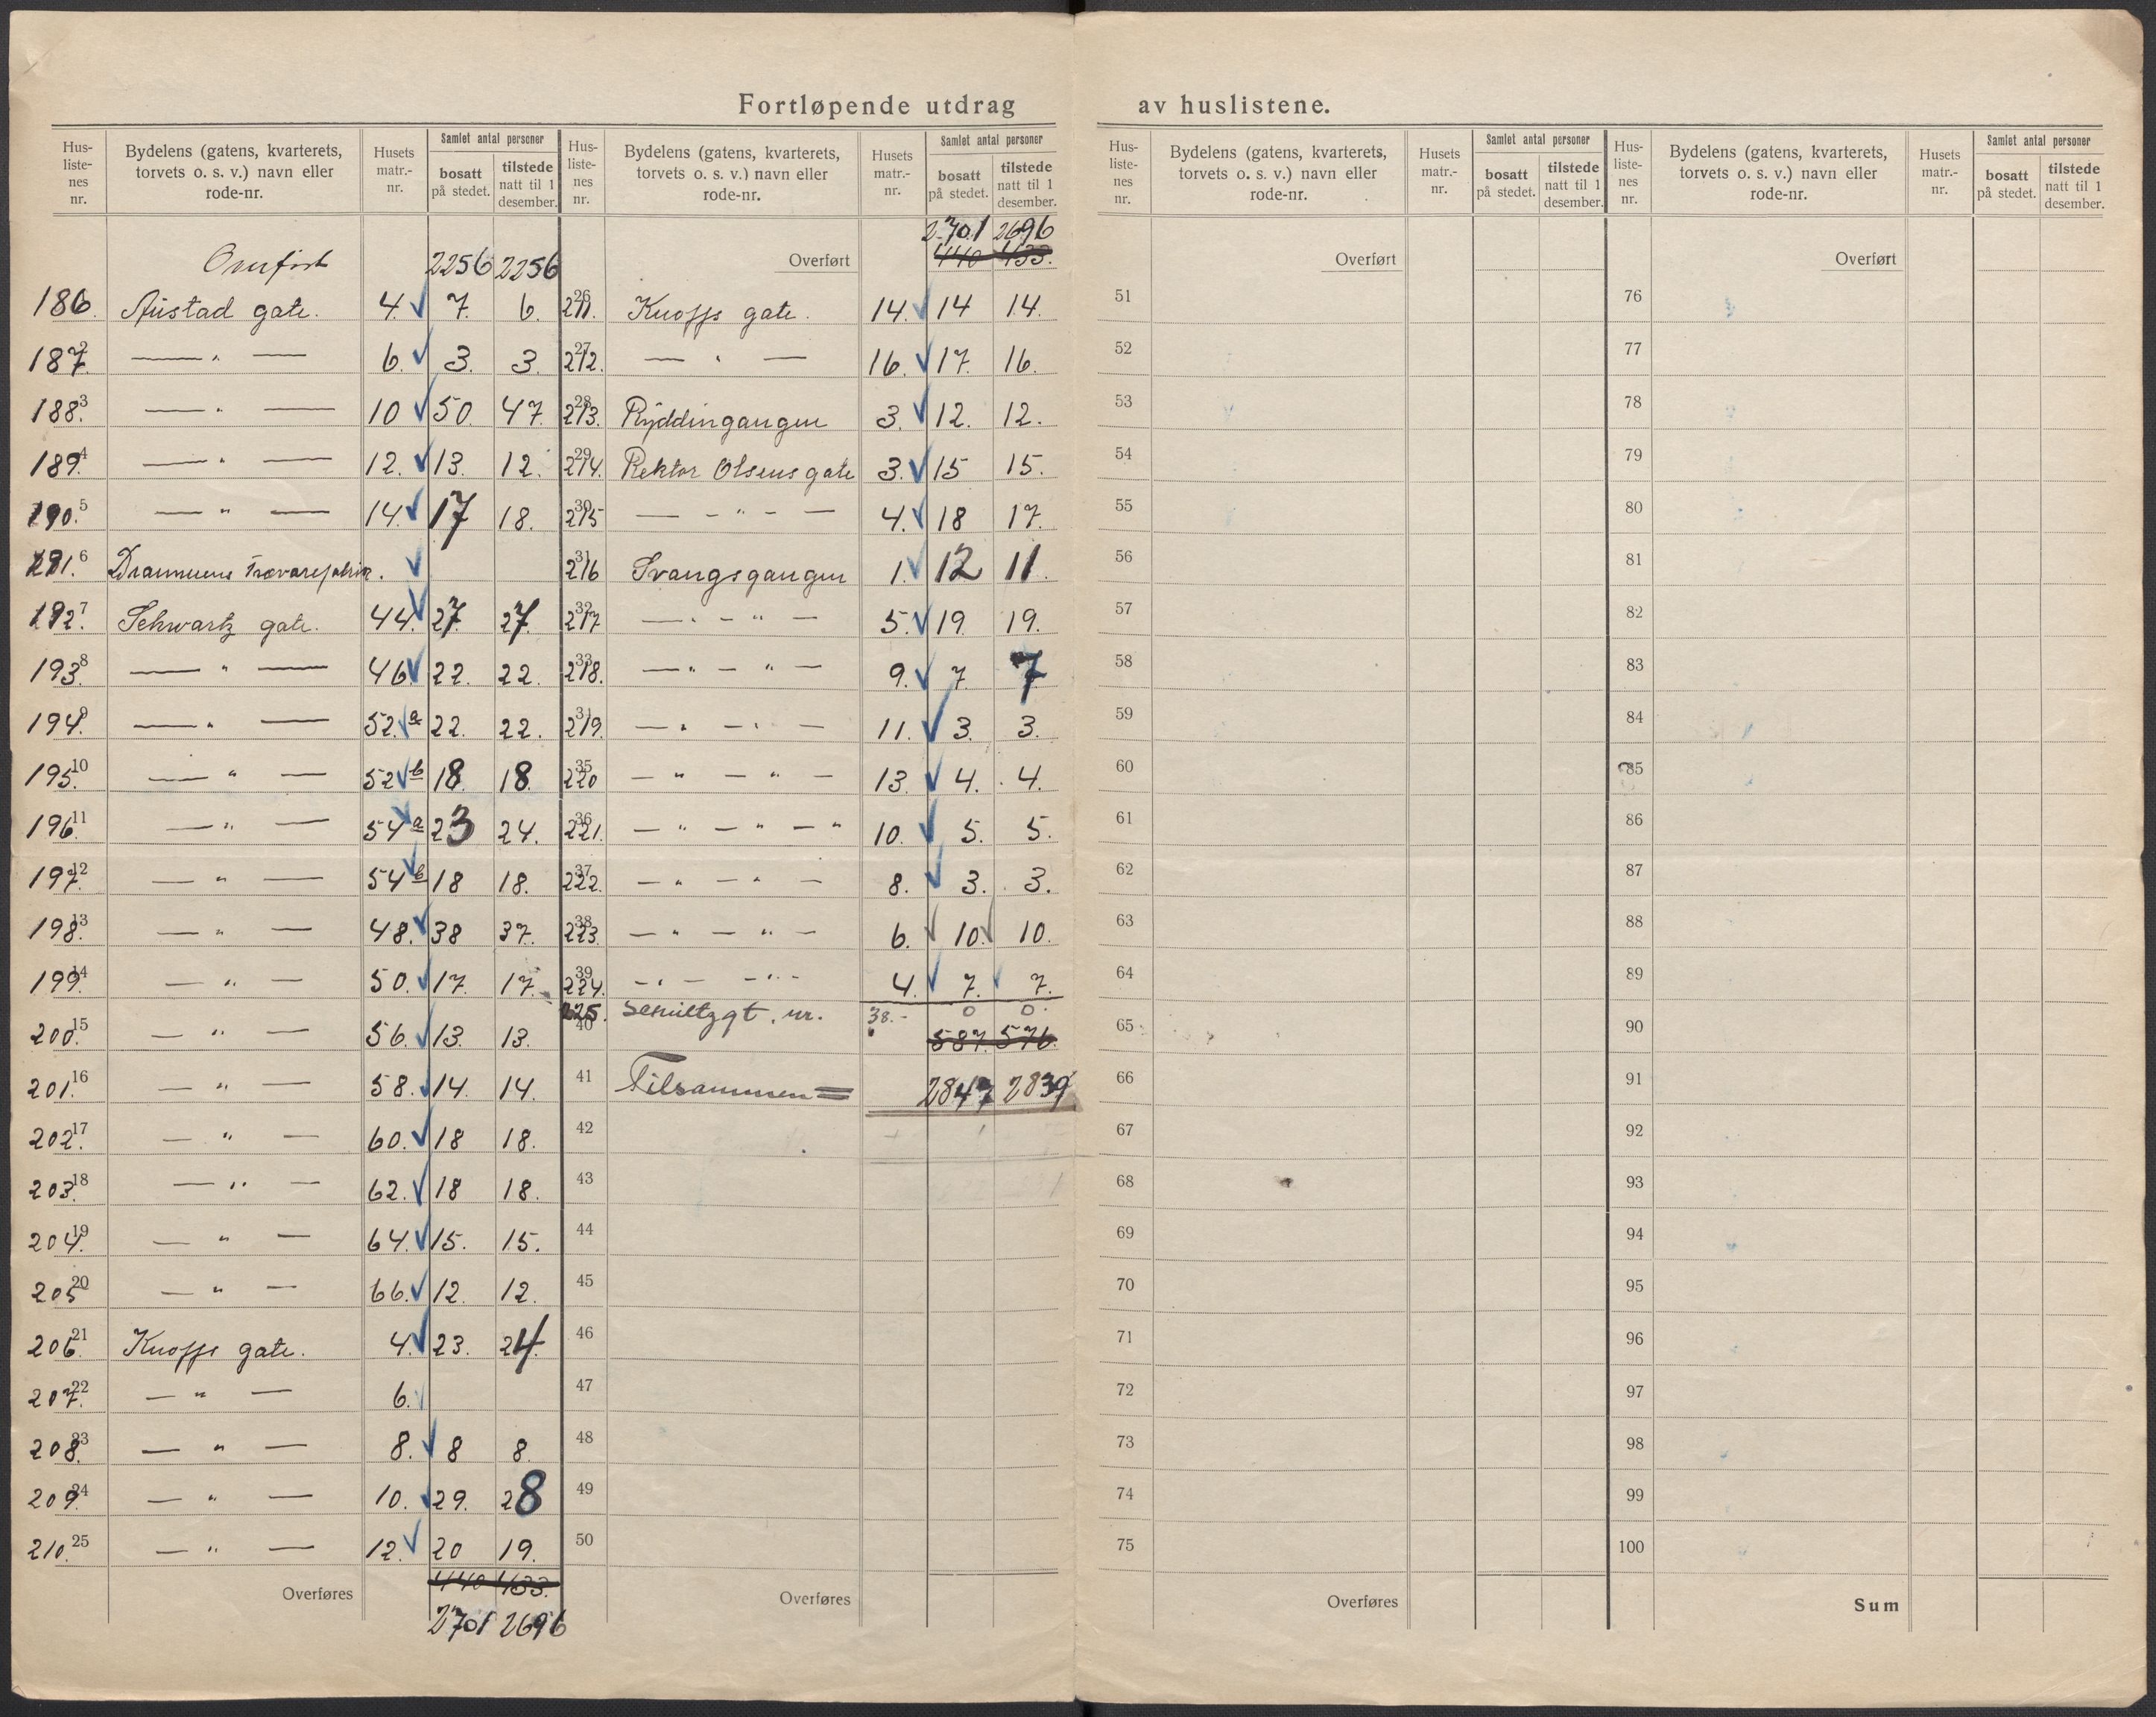 Fortløpende utdrag av huslistene.
Hus-liste-nes nr. | Bydelens (gatens, kvarterets, torvets o. s. v.) navn eller rode-nr. | Husets matr.-nr. | Samlet antal personer bosatt på stedet. | tilstede natt til 1 desember.
Overført 2256 2256
186. Austad gate. 4. 7. 6.
187. 2 — " — 6. 3. 3.
188. 3 — " — 10 50. 47.
189. 4 — " — 12. 13. 12.
190. 5 — " — 14. 17 18.
191. 6 Drammens Trævarefabrik.
192. 7 Schwartz gate. 44. 27. 27.
193. 8 — " — 46 22. 22.
194. 9 — " — 52. a 22. 22.
195. 10 — " — 52 b 18. 18.
196. 11 — " — 54 a 23 24.
197. 12 — " — 54 b 18 18.
198. 13 — " — 48. 38 37.
199. 14 — " — 50. 17. 17.
200. 15 — " — 56. 13. 13.
201. 16 — " — 58. 14. 14.
202. 17 — " — 60. 18 18.
203. 18 — " — 62. 18 18.
204. 19 — " — 64. 15. 15.
205. 20 — " — 66. 12. 12.
206. 21 Knoffs gate. 4. 23. 24.
207. 22 — " — 6.
208. 23 — " — 8. 8 8.
209. 24 — " — 10. 29. 28
210. 25 — " — 12. 20 19.
440 433.
Overføres
2701 2696
Hus-liste-nes nr. | Bydelens (gatens, kvarterets, torvets o. s. v.) navn eller rode-nr. | Husets matr.-nr. | Samlet antal personer bosatt på stedet. | tilstede natt til 1 desember.
2701 2696
Overført 440 433.
211. 26 Knoffs gate. 14. 14 14.
212. 27 — " — 16. 17. 16.
213. 28 Ryddingangen 3. 12. 12.
214. 29 Rektor Olsens gate 3. 15 15.
215 30 — " — 4. 18 17.
216 31 Svangsgangen 1. 12 11.
217 32 — " — " — 5. 19. 19.
218. 33 — " — " — 9. 7. 7
219. 34 — " — " — 11. 3. 3.
220 35 — " — " — 13. 4. 4.
221. 36 — " — " — " 10. 5. 5.
222. 37 — " — " — 8. 3. 3.
223 38 — " — " — 6. 10. 10.
224. 39 — " — " — 4. 7. 7.
225. 40 38.- 0 0.
587. 576.
41 Tilsammen = 2847 2839
42
43
44
45
46
47
48
49
50
Overføres
Hus-liste-nes nr. | Bydelens (gatens, kvarterets, torvets o. s. v.) navn eller rode-nr. | Husets matr.-nr. | Samlet antal personer bosatt på stedet. | tilstede natt til 1 desember.
Overført
51
52
53
54
55
56
57
58
59
60
61
62
63
64
65
66
67
68
69
70
71
72
73
74
75
Overføres
Hus-liste-nes nr. | Bydelens (gatens, kvarterets, torvets o. s. v.) navn eller rode-nr. | Husets matr.-nr. | Samlet antal personer bosatt på stedet. | tilstede natt til 1 desember.
Overført
76
77
78
79
80
81
82
83
84
85
86
87
88
89
90
91
92
93
94
95
96
97
98
99
100
Sum